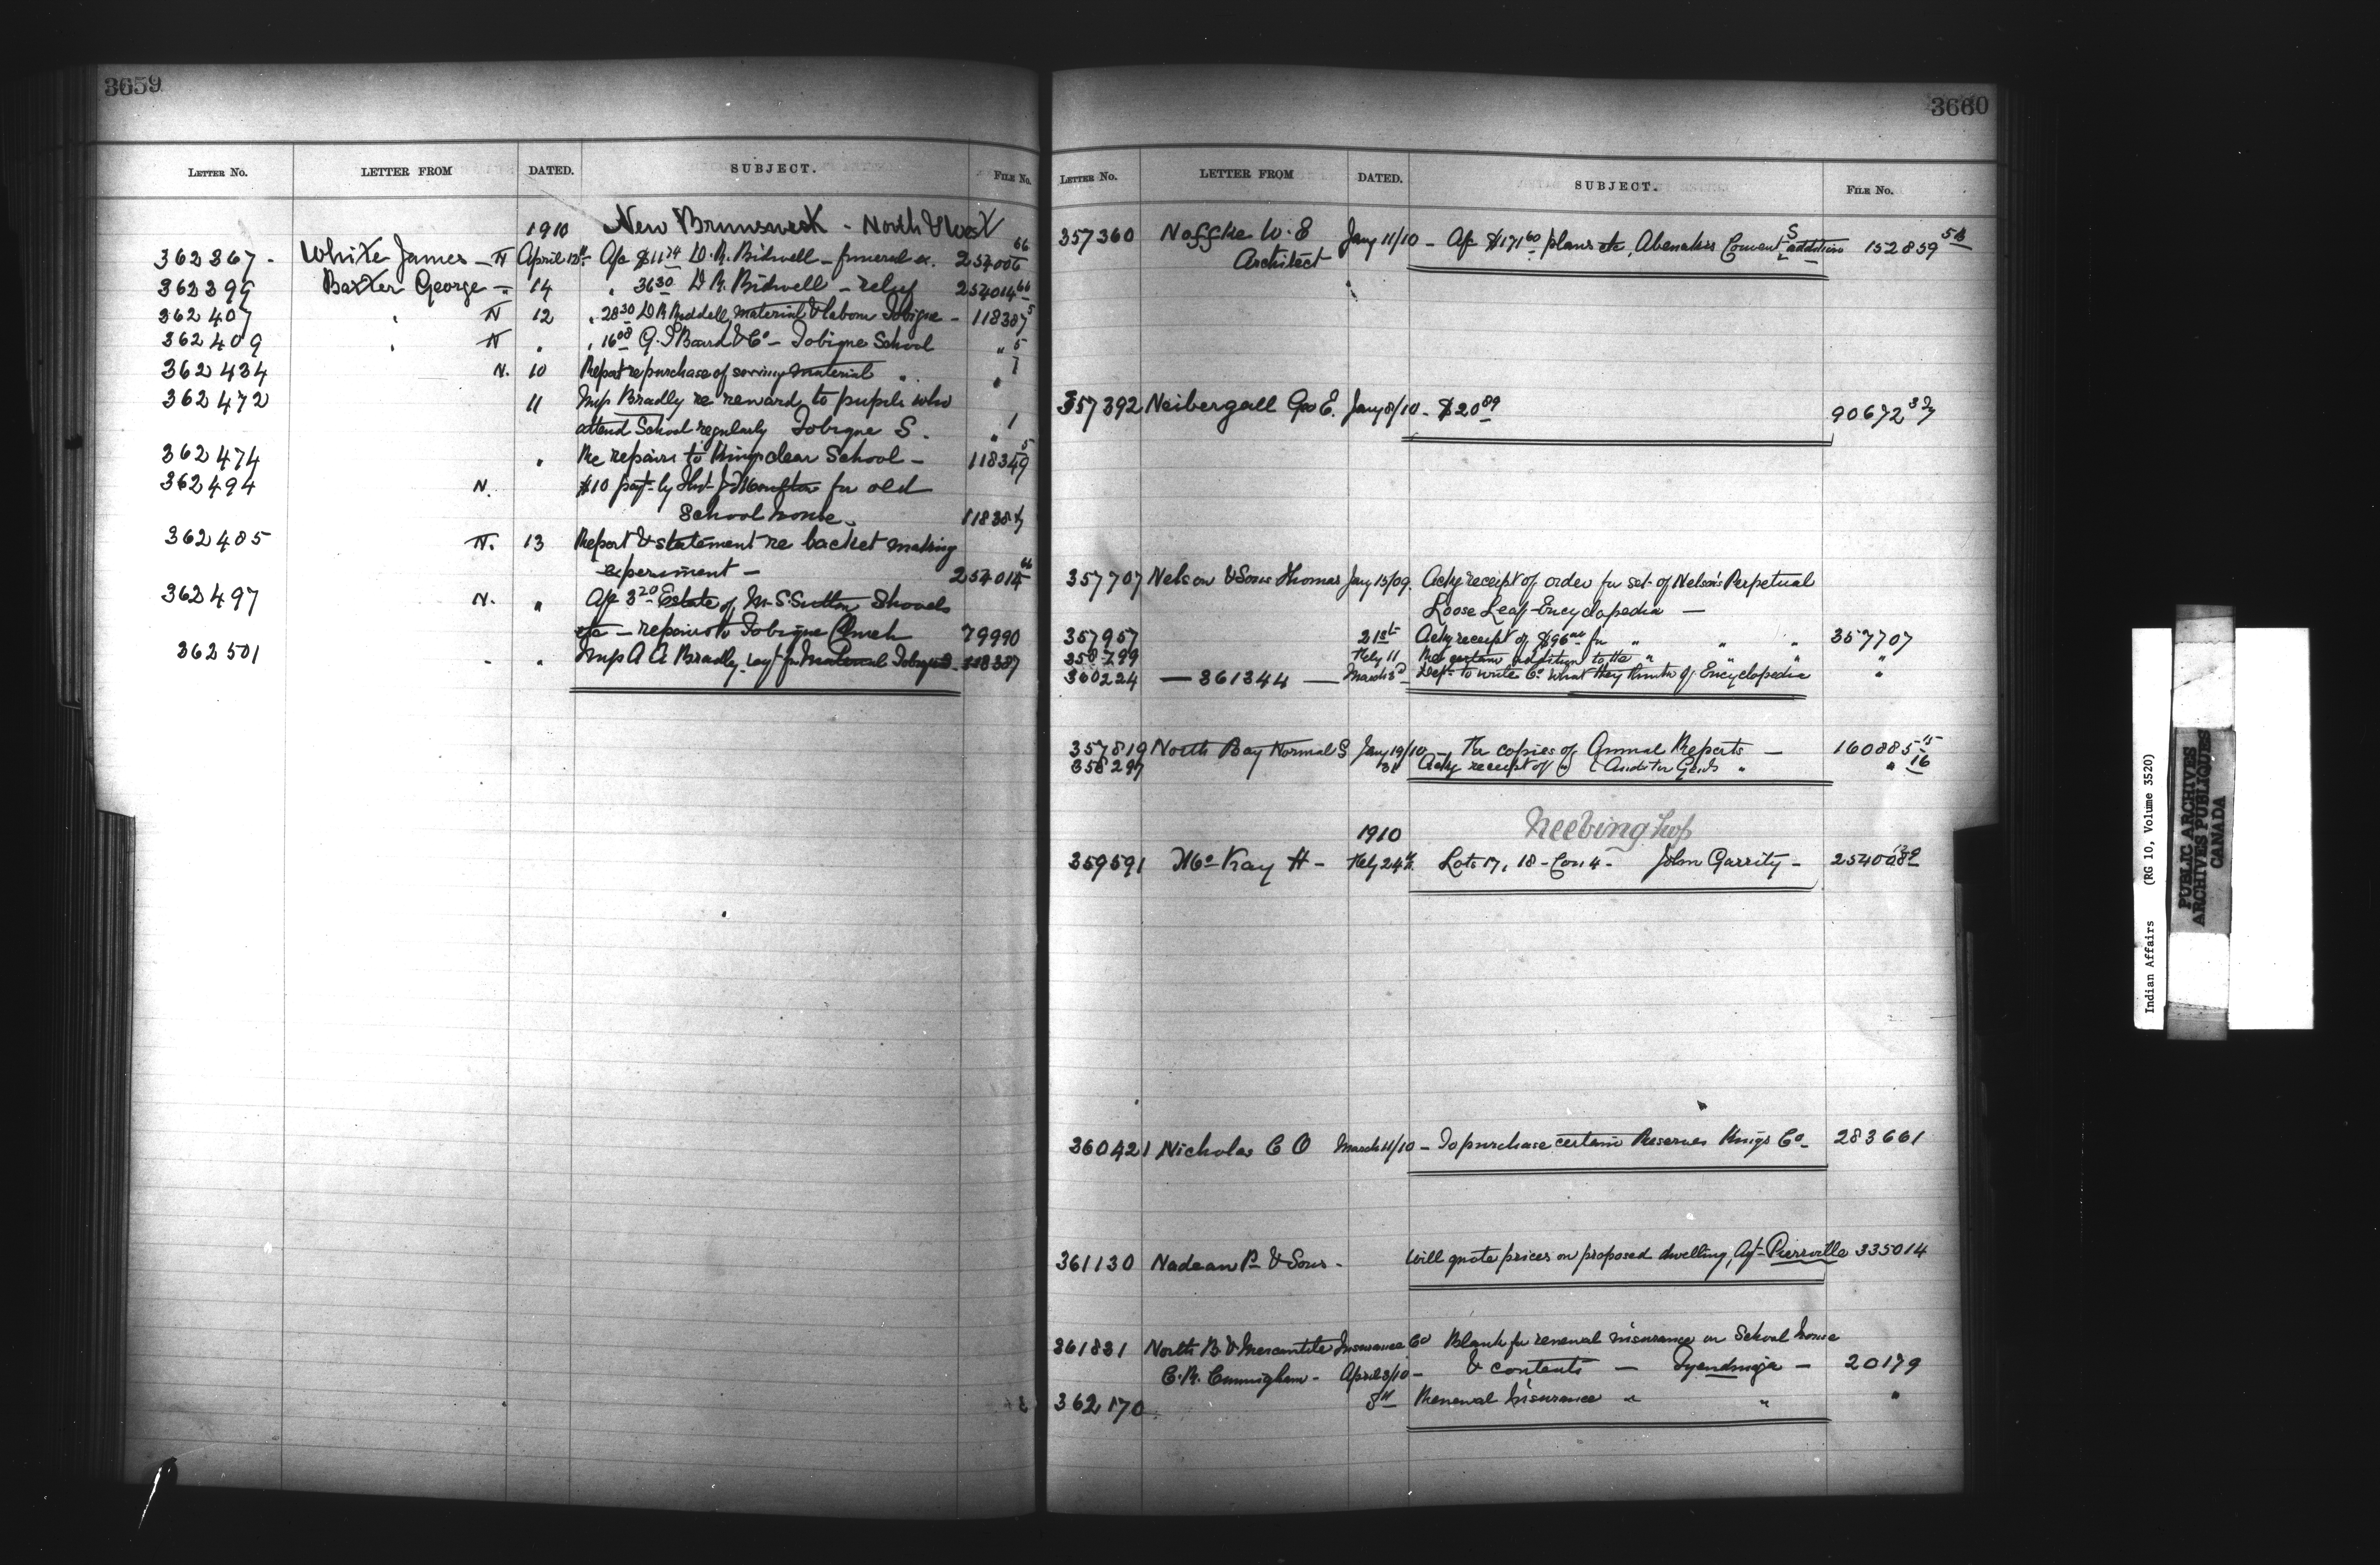 3659
LETTER NO. LETTER FROM DATED. SUBJECT. FILE No.
1910 New Brunswick - North & West
362367 - White James - N April 12th Ap $11 74 D.R. Bidwell - funeral ex. 254006 66
362399 Baxter George - " 14 " 36 30 D R. Bidwell - relief 254014 66
362407 " N 12 " 28 30 D R Buddell, material & labour Tobique - 118387 5
362409 " N " " 16 08 G. T Baird & Co - Tobique School " 5
362434 N. 10 Report re purchase of sewing material " " 7
362472 11 Insp Bradly re rewards to pupils who
attend School regularly Tobique S. " 1
362474 " Re repairs to Kingsclear School - 118349 5
362494 N. $10 payt by for old
School house.
362485 N. 13 Report & statement re basket making
experiment - 254014 66
362497 N. " Ap 3 20 Estate of M. S. Sutton Shovels
etc - repairs to Tobique Church 79990
362501 - " Insp A A Bradly for Material Tobique 118387
3660
LETTER NO. LETTER FROM DATED. SUBJECT. FILE No.
357360 Noffke W. E Jany 11/10 - Ap $171 60 plans etc, Abenakis Convent S addition 152859
Architect
357392 Neibergall Geo E. Jany 8/10 - $20 89 90672
357707 Nelson & Sons Thomas Jany 15/09. Ackg receipt of order for set of Nelson's Perpetual
Loose Leaf Encyclopedia -
357957 21st Ackg receipt of $96 00 for " " " 357707
358799 Feby 11 Re certain addition to the " " " "
360224 - 361344 - March 3d Dept to write Co what they think of Encyclopedia "
357819 North Bay Normal S Jany 19/10 - For copies of Annual Reports - 160885 15
358297 31 Ackg receipt of " & Auditor Genls " " 16
Neebing Twp
1910
359591 McKay H - Feby 24th Lots 17, 18 - Con 4 - John Garrity -
360421 Nicholas C O March 11/10 - To purchase certain Reserves Kings Co - 283661
361130 Nadeau P. & Sons - Will quote prices on proposed dwelling, Agt - Pierreville 335014
361831 North B. & Mercantile Insurance Co Blank for renewal insurance on School house
C. R. Cunningham - April 2/10 - & contents - Tyendinaga - 20179
362170 8th Renewal Insurance " " "
Indian Affairs (RG 10, Volume 3520)
PUBLIC ARCHIVES
ARCHIVES PUBLIQUES
CANADA